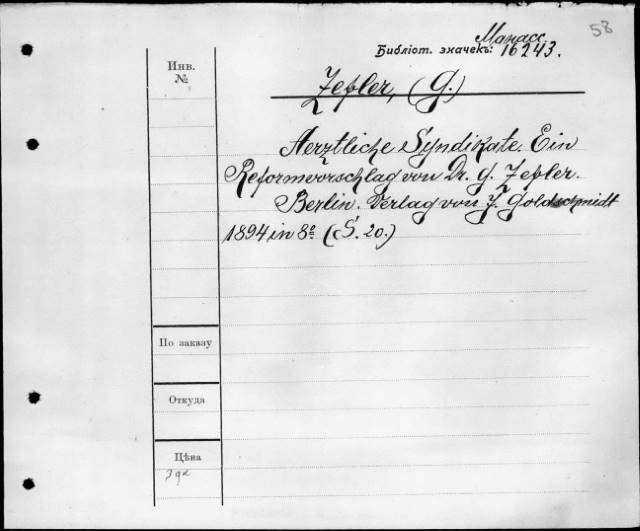 58
Манасс.
Библіот. значекъ: 16243.
Инв.
№
Zepler, (G.)
Aerztliche Syndikate. Ein
Reformvorschlag von Dr. G. Zepler.
Berlin. Verlag von J. Goldschmidt
1894 in 8º (S. 20.)
По заказу
Откуда
Цѣна